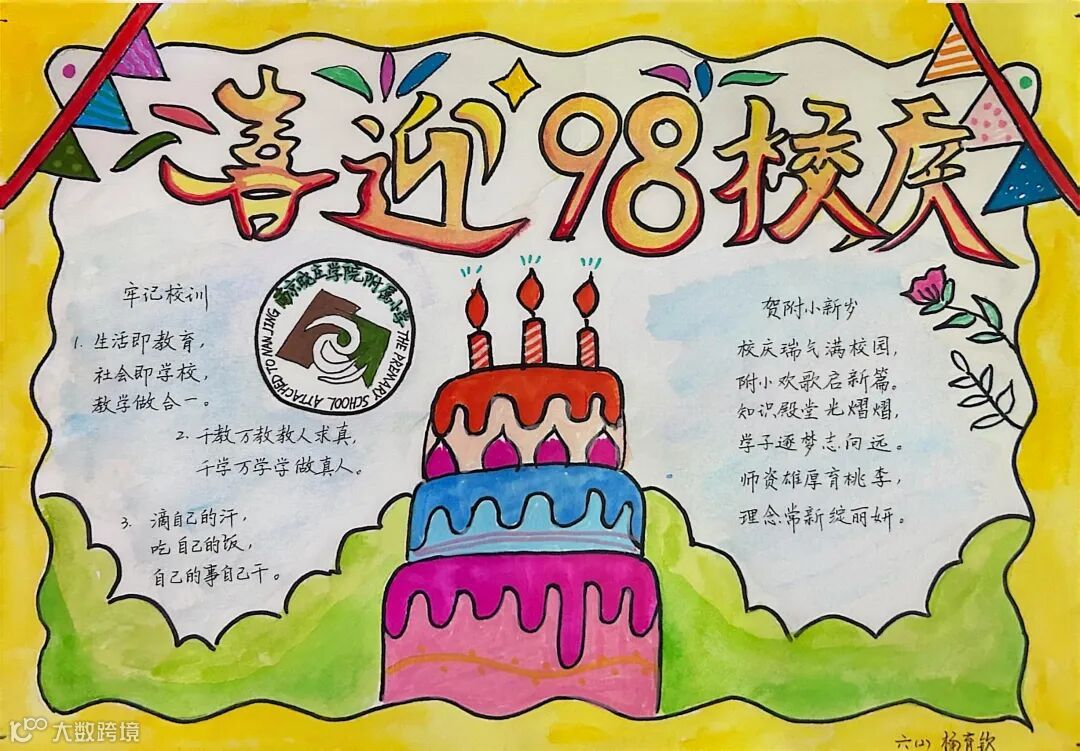 喜迎98校庆
牢记校训
1. 生活即教育,
社会即学校,
教学做合一。
2. 千教万教教人求真,
千学万学学做真人。
3. 滴自己的汗,
吃自己的饭,
自己的事自己干。
南京晓庄学院附属小学
THE PRIMARY SCHOOL ATTACHED TO NANJING
贺附小新岁
校庆瑞气满校园,
附小欢歌启新篇。
知识殿堂光熠熠,
学子逐梦志向远。
师资雄厚育桃李,
理念常新绽丽妍。
大数跨境
六(2) 杨育钦